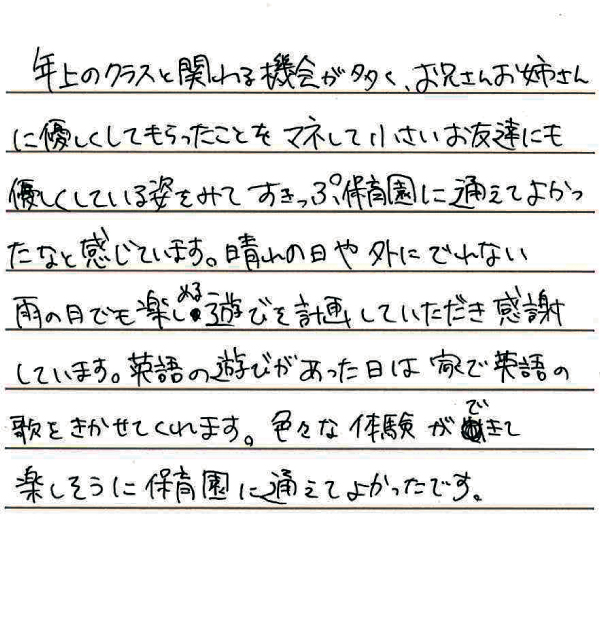 年上のクラスと関わる機会が多く、お兄さんお姉さん
に優しくしてもらったことを マネして小さいお友達にも
優しくしている姿をみて すきっぷ保育園に通えてよかっ
たなと感じています。晴れの日や 外にでれない
雨の日でも楽しめる遊びを計画していただき感謝
しています。英語の遊びがあった日は 家で英語の
歌をきかせてくれます。色々な 体験ができて
楽しそうに保育園に通えてよかったです。